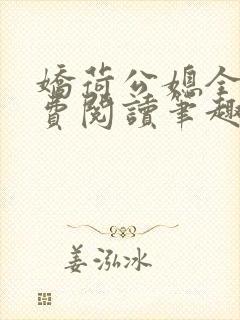 嬌荷公媳全
費閱讀筆趣
姜泓冰